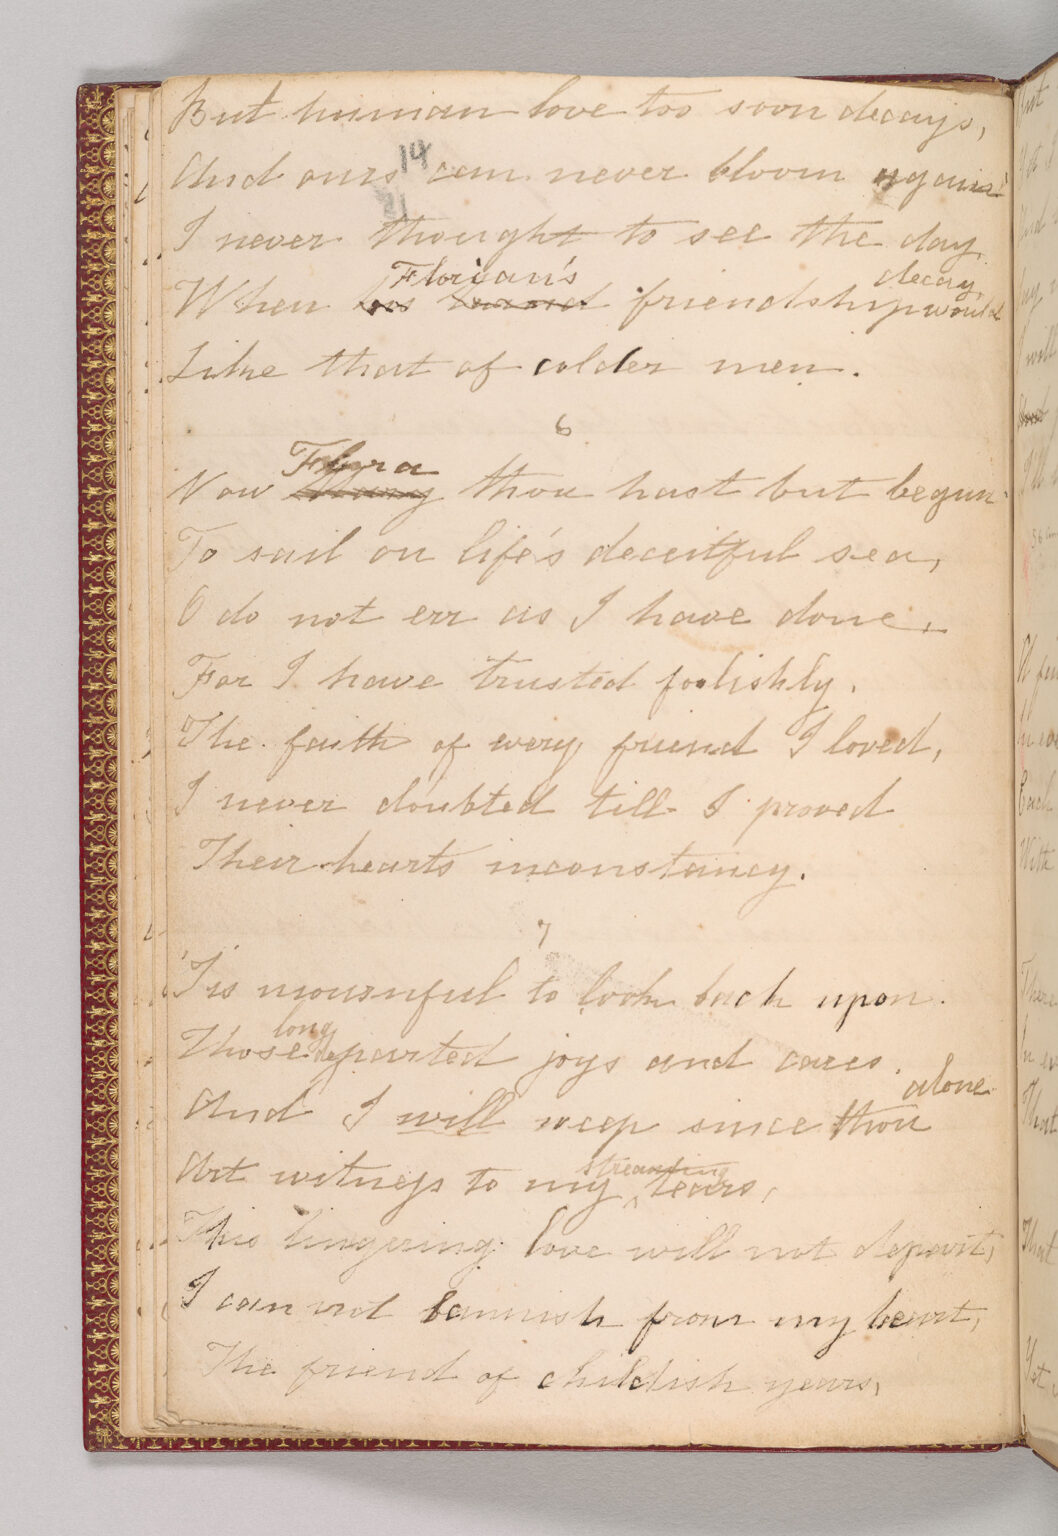 But human love too soon decays,
14
And ours can never bloom again
21
I never thought to see the day
Florian's decay
When his friendship would
Like that of colder men.
6
Flora
Now Mary thou hast but begun
To sail on life's deceitful sea,
O do not err as I have done,
For I have trusted foolishly.
The faith of every friend I loved,
I never doubted till I proved
Their hearts inconstancy.
7
'Tis mournful to look back upon
long
Those departed joys and cares.
alone
And I will weep since thou
streaming
Art witness to my tears,
This lingering love will not depart,
I can not bannish from my heart,
The friend of childish years,